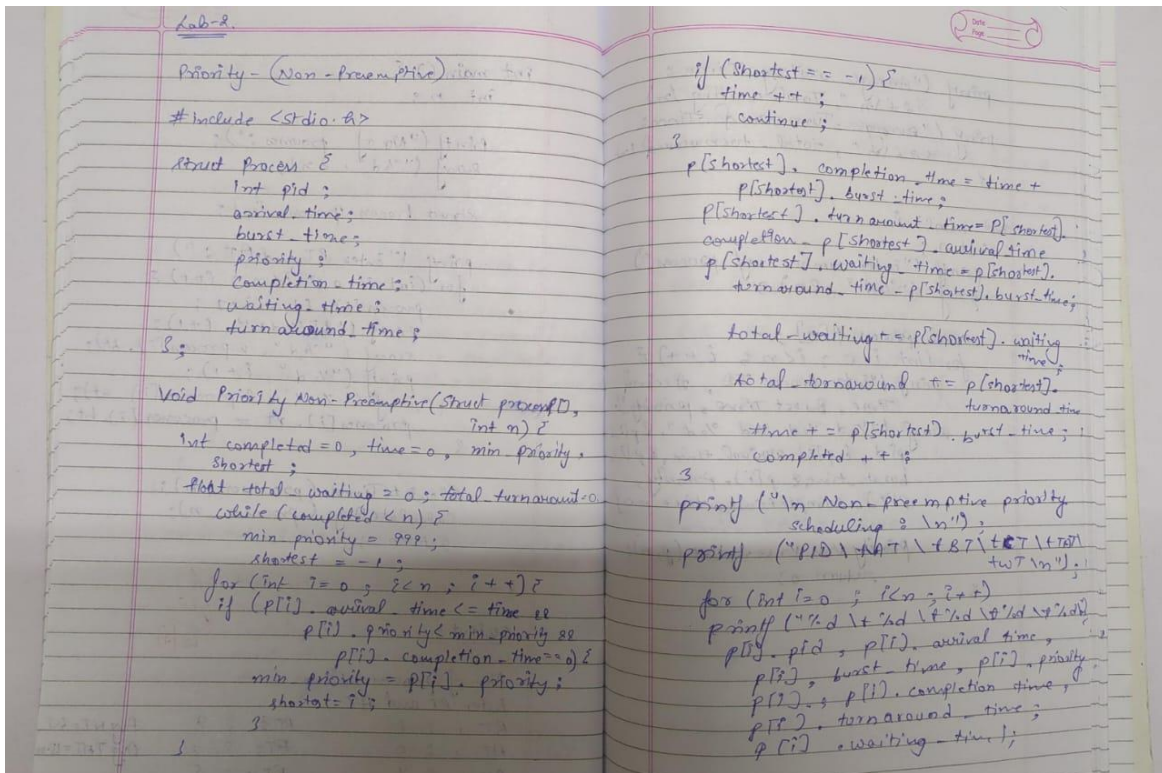 Lab-2.
Priority - (Non-Preemptive)
#include <stdio.h>
struct Process {
int pid ;
arrival_time ;
burst_time ;
priority ;
completion_time ;
waiting_time ;
turnaround_time ;
} ;
Void Priority Non-Preemptive (struct process p[],
int n) {
int completed = 0, time = 0, min_priority,
shortest ;
float total_waiting = 0 ; total_turnaround = 0
while (completed < n) {
min_priority = 999 ;
shortest = -1 ;
for (int i = 0 ; i < n ; i++) {
if (p[i]. arrival_time <= time &&
p[i]. priority < min_priority &&
p[i]. completion_time == 0) {
min_priority = p[i]. priority ;
shortest = i ;
}
}
Date
Page
if (shortest == -1) {
time ++ ;
continue ;
}
p[shortest]. completion_time = time +
p[shortest]. burst_time ;
p[shortest]. turnaround_time = P[shortest].
completion - p[shortest]. arrival time ;
p[shortest]. waiting_time = p[shortest].
turnaround_time - p[shortest]. burst_time ;
total_waiting += p[shortest]. waiting
time ;
total_turnaround += p[shortest].
turnaround_time
time += p[shortest]. burst_time ;
completed ++ ;
}
printf ("\n Non-preemptive priority
scheduling : \n") ;
printf ("PID \t AT \t BT \t CT \t TAT \
t WT \n") ;
for (int i = 0 ; i < n ; i++)
printf ("%d \t %d \t %d \t %d \t %d
p[i]. pid, p[i]. arrival time,
p[i], burst_time, p[i]. priority
p[i]., p[i]. completion time,
p[i]. turnaround_time ;
p[i] . waiting_time);